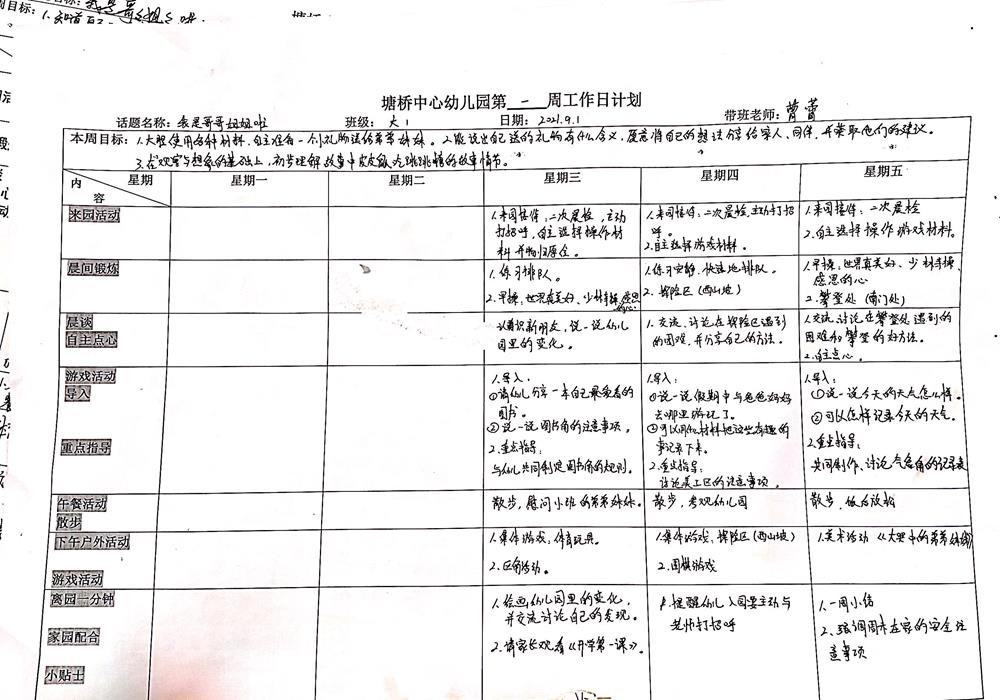 塘桥中心幼儿园第 一 周工作日计划
话题名称：我是哥哥姐姐啦 班级：大1 日期：2021.9.1 带班老师：曹蕾
本周目标：1.大胆使用各种材料，自主准备一个小礼物送给弟弟妹妹。2.能说出自己送的礼物有什么含义，愿意将自己的想法分享给家人、同伴，并采取他们的建议。
3.在观察与想象的基础上，初步理解故事中皮皮鼠上蹿跳情的故事情节。
内容 星期 星期一 星期二 星期三 星期四 星期五
来园活动
1.来园接待，二次晨检，主动
打招呼，自主选择操作材
料并物归原位。
1.来园接待：二次晨检，主动打招
呼。
2.自主选择游戏材料。
1.来园接待：二次晨检
2.自主选择操作游戏材料。
晨间锻炼
1.练习排队。
2.早操，世界真美好、少林拳操、感恩
的心
1.练习安静、快速地排队。
2.探险区（西山坡）
1.早操，世界真美好、少林拳操、
感恩的心
2.攀登处（南门处）
晨谈
自主点心
认识新朋友，说一说幼儿
园里的变化。
1.交流、讨论在探险区遇到
的困难，并分享自己的方法。
1.交流、讨论在攀登处遇到的
困难和攀登的好方法。
2.自主点心。
游戏活动
导入
重点指导
1.导入：
①请幼儿分享一本自己最爱看的
图书。
②说一说图书角的注意事项。
2.重点指导：
与幼儿共同制定图书角的规则。
1.导入：
①说一说假期中与爸爸妈妈
去哪里游玩了。
②可以用什么材料把这些有趣的
事记录下来。
2.重点指导：
讨论美工区的注意事项。
1.导入：
①说一说今天的天气怎么样。
②可以怎样记录今天的天气。
2.重点指导：
共同制作、讨论气象角的记录表
午餐活动
散步
散步，慰问小班的弟弟妹妹。
散步，参观幼儿园
散步，饭后放松
下午户外活动
游戏活动
1.集体游戏：体育玩具。
2.区角活动。
1.集体游戏，探险区（西山坡）
2.围棋游戏
1.美术活动《大班中的弟弟妹妹》
离园一分钟
家园配合
小贴士
1.绘画幼儿园里的变化，
并交流讨论自己的发现。
2.请家长观看《开学第一课》。
1.提醒幼儿入园要主动与
老师打招呼
1.一周小结
2.强调周末在家的安全注
意事项